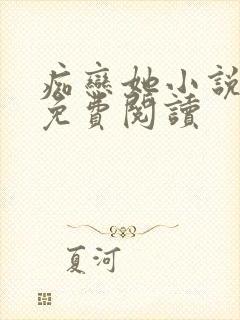 痴戀她小說
免費閱讀
夏河